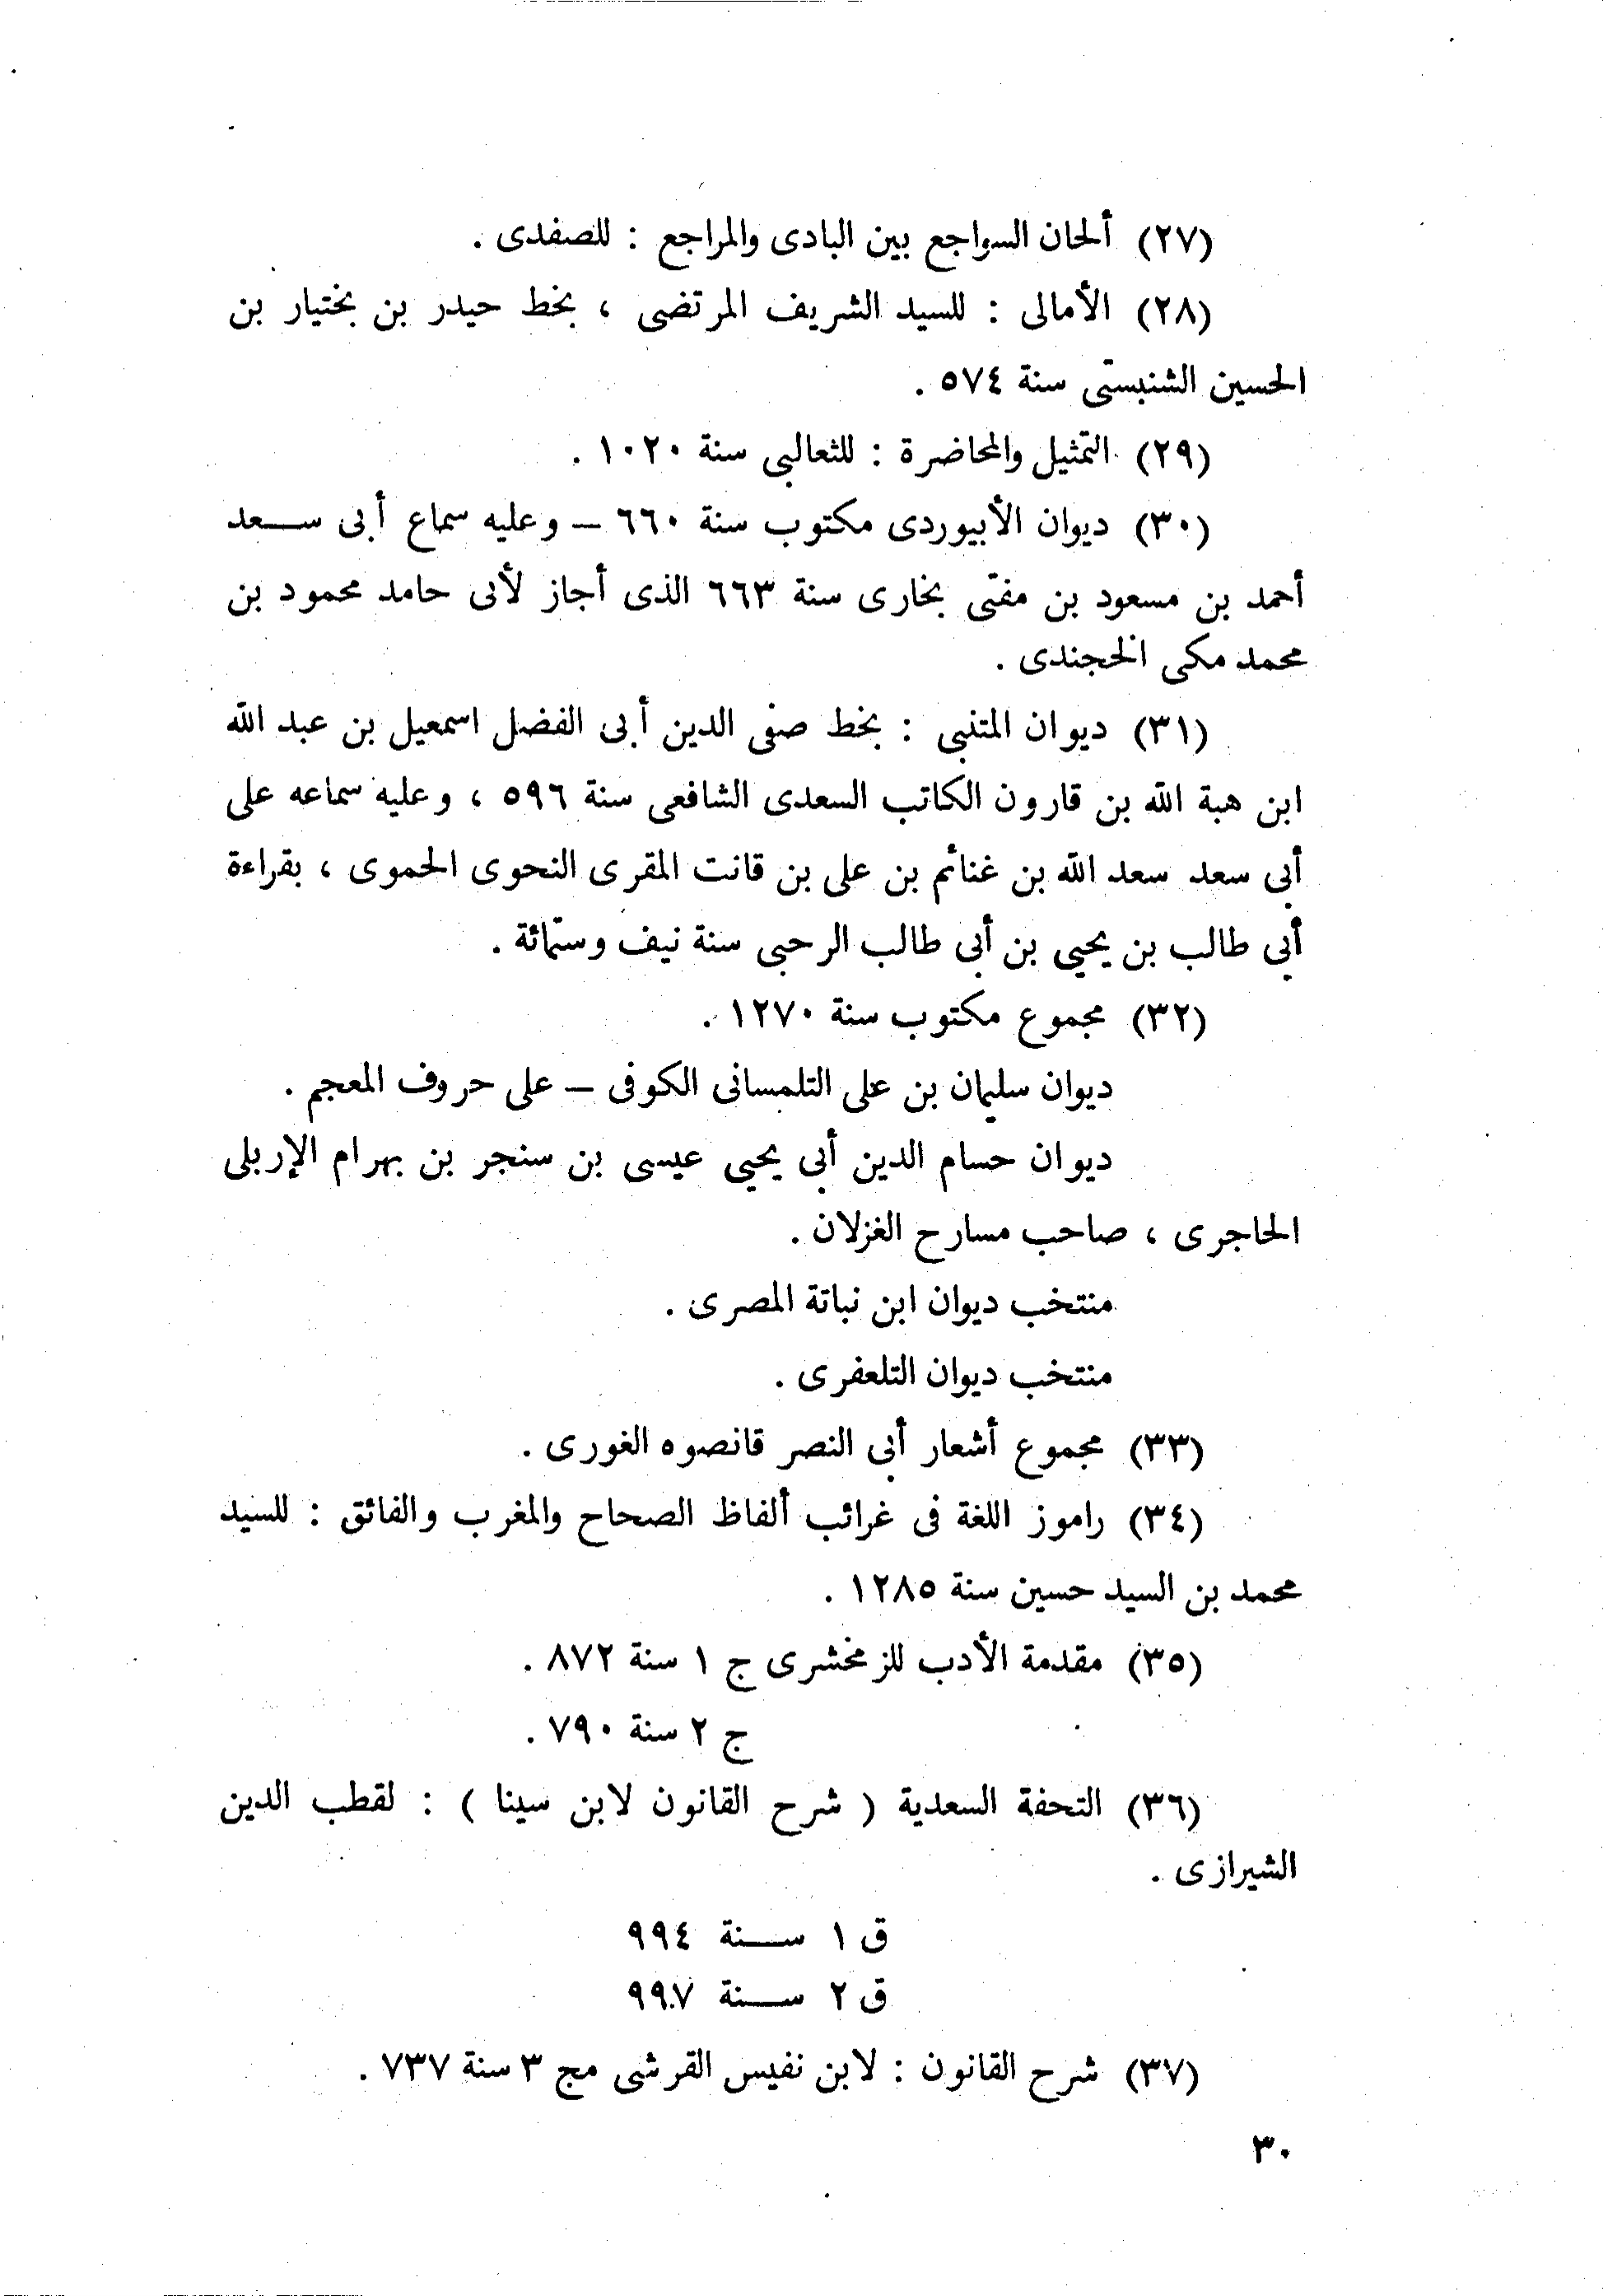 (٢٧) ألحان السواجع بين البادى والمراجع : للصفدى .
(٢٨) الأمالى : للسيد الشريف المرتضى ، بخط حيدر بن بختيار بن
الحسين الشنبستى سنة ٥٧٤ .
(٢٩) التمثيل والمحاضرة : للثعالبى سنة ١٠٢٠ .
(٣٠) ديوان الأبيوردى مكتوب سنة ٦٦٠ – وعليه سماع أبى سعد
أحمد بن مسعود بن مفتى بخارى سنة ٦٦٣ الذى أجاز لأبى حامد محمود بن
محمد مكى الخجندى .
(٣١) ديوان المتنبى : بخط صفى الدين أبى الفضل اسمعيل بن عبد الله
ابن هبة الله بن قارون الكاتب السعدى الشافعى سنة ٥٩٦ ، وعليه سماعه على
أبى سعد سعد الله بن غنائم بن على بن قانت المقرى النحوى الحموى ، بقراءة
أبى طالب بن يحيى بن أبى طالب الرحبى سنة نيف وستمائة .
(٣٢) مجموع مكتوب سنة ١٢٧٠ .
ديوان سليمان بن على التلمسانى الكوفى – على حروف المعجم .
ديوان حسام الدين أبى يحيى عيسى بن سنجر بن بهرام الإربلى
الحاجرى ، صاحب مسارح الغزلان .
منتخب ديوان ابن نباتة المصرى .
منتخب ديوان التلعفرى .
(٣٣) مجموع أشعار أبى النصر قانصوه الغورى .
(٣٤) راموز اللغة فى غرائب ألفاظ الصحاح والمغرب والفائق : للسيد
محمد بن السيد حسين سنة ١٢٨٥ .
(٣٥) مقدمة الأدب للزمخشرى ج ١ سنة ٨٧٢ .
ج ٢ سنة ٧٩٠ .
(٣٦) التحفة السعدية ( شرح القانون لابن سينا ) : لقطب الدين
الشيرازى .
ق ١ سنة ٩٩٤
ق ٢ سنة ٩٩٧
(٣٧) شرح القانون : لابن نفيس القرشى مج ٣ سنة ٧٣٧ .
٣٠